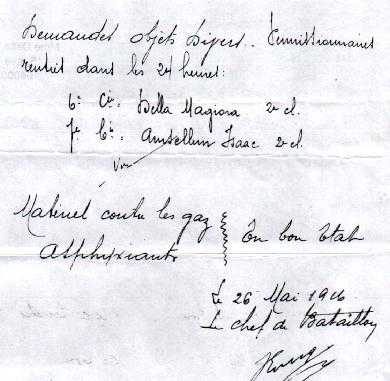 Demandes objets Divers. Permissionnaires
rentrés dans les 24 heures:
6e Cie. Della Magiora 2e cl.
7e Cie. Amsellem Isaac 2e cl.
Vu
Matériel contre les gaz
Asphyxiants
En bon Etat
Le 26 Mai 1916
Le chef de Bataillon